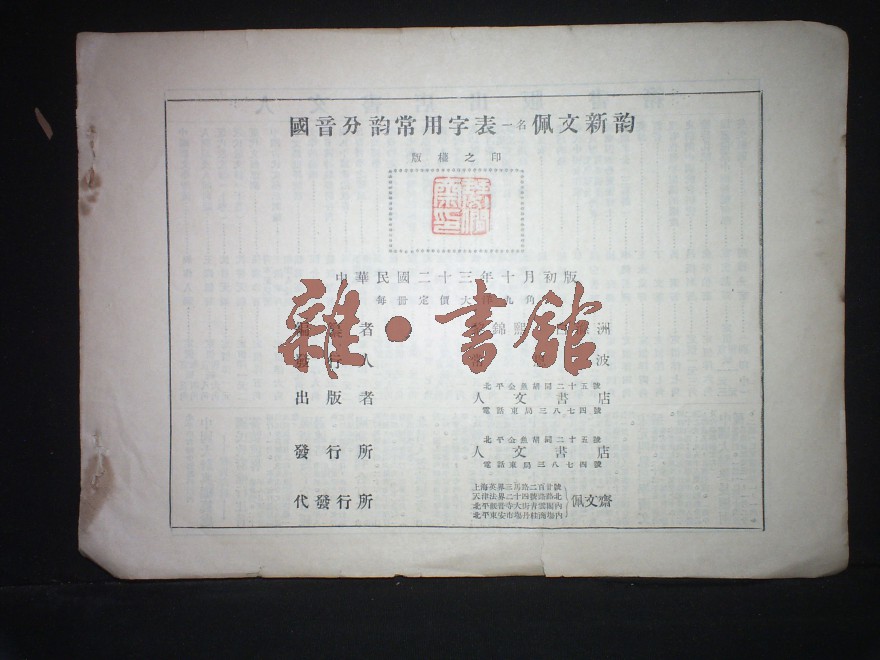 國音分韵常用字表 一名 佩文新韵
版權之印
中華民國二十三年十月初版
每册定價大洋九角
雜·書館
者 錦熙 洲
發行人 波
出版者 人文書店
北平金魚胡同二十五號
電話東局三八七四號
發行所 人文書店
北平金魚胡同二十五號
電話東局三八七四號
代發行所 佩文齋
上海英界三馬路二百廿號
天津法界二十四號路路北
北平觀音寺大街青雲閣內
北平東安市場丹桂商場內